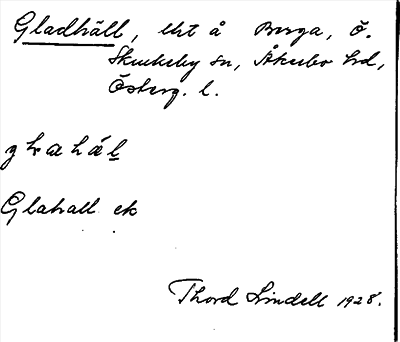 Gladhäll, lht å Berga, Ö.
Skrukeby sn, Åkerbo hd,
Österg. l.
Glahall ek
Thord Lindell 1928.